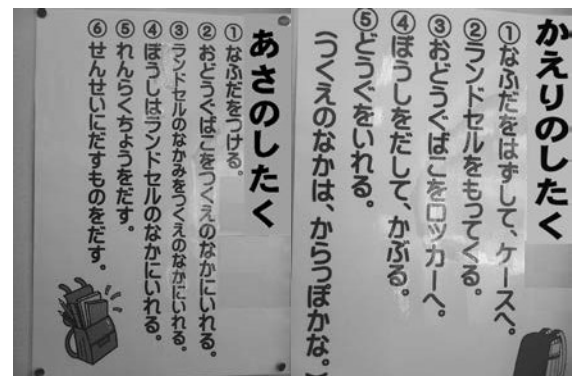 かえりのしたく
①なふだをはずして、ケースへ。
②ランドセルをもってくる。
③おどうぐばこをロッカーへ。
④ぼうしをだして、かぶる。
⑤どうぐをいれる。
(つくえのなかは、からっぽかな。)
あさのしたく
①なふだをつける。
②おどうぐばこをつくえのなかにいれる。
③ランドセルのなかみをつくえのなかにいれる。
④ぼうしはランドセルのなかにいれる。
⑤れんらくちょうをだす。
⑥せんせいにだすものをだす。